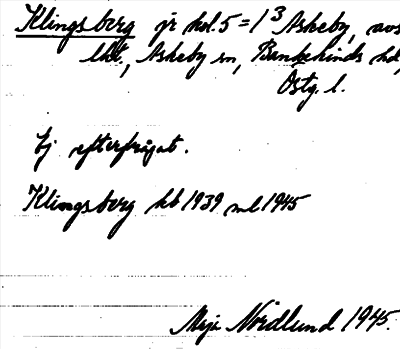 Klingsberg jr kol. 5 = 1³ Askeby, avs
lht., Askeby sn, Bankekinds hd,
Östg. l.
Ej efterfrågat.
Klingsberg kb 1939 ml 1945
Maja Nordlund 1945.